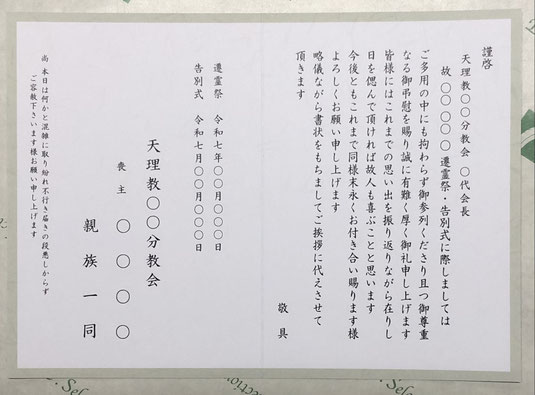 謹啓
天理教〇〇分教会　〇代会長
故　〇〇〇〇　遷霊祭・告別式に際しましては
ご多用の中にも拘わらず御参列くださり且つ御尊重
なる御弔慰を賜り誠に有難く厚く御礼申し上げます
皆様にはこれまでの思い出を振り返りながら在りし
日を偲んで頂ければ故人も喜ぶことと思います
今後ともこれまで同様末永くお付き合い賜ります様
よろしくお願い申し上げます
略儀ながら書状をもちましてご挨拶に代えさせて
頂きます
敬具
遷霊祭　令和七年〇〇月〇〇〇日
告別式　令和七月〇〇月〇〇〇日
天理教〇〇分教会
喪主　〇〇〇〇
親族一同
尚 本日は何かと混雑に取り紛れ不行き届きの段悪しからず
ご容赦下さいます様お願い申し上げます
Selection